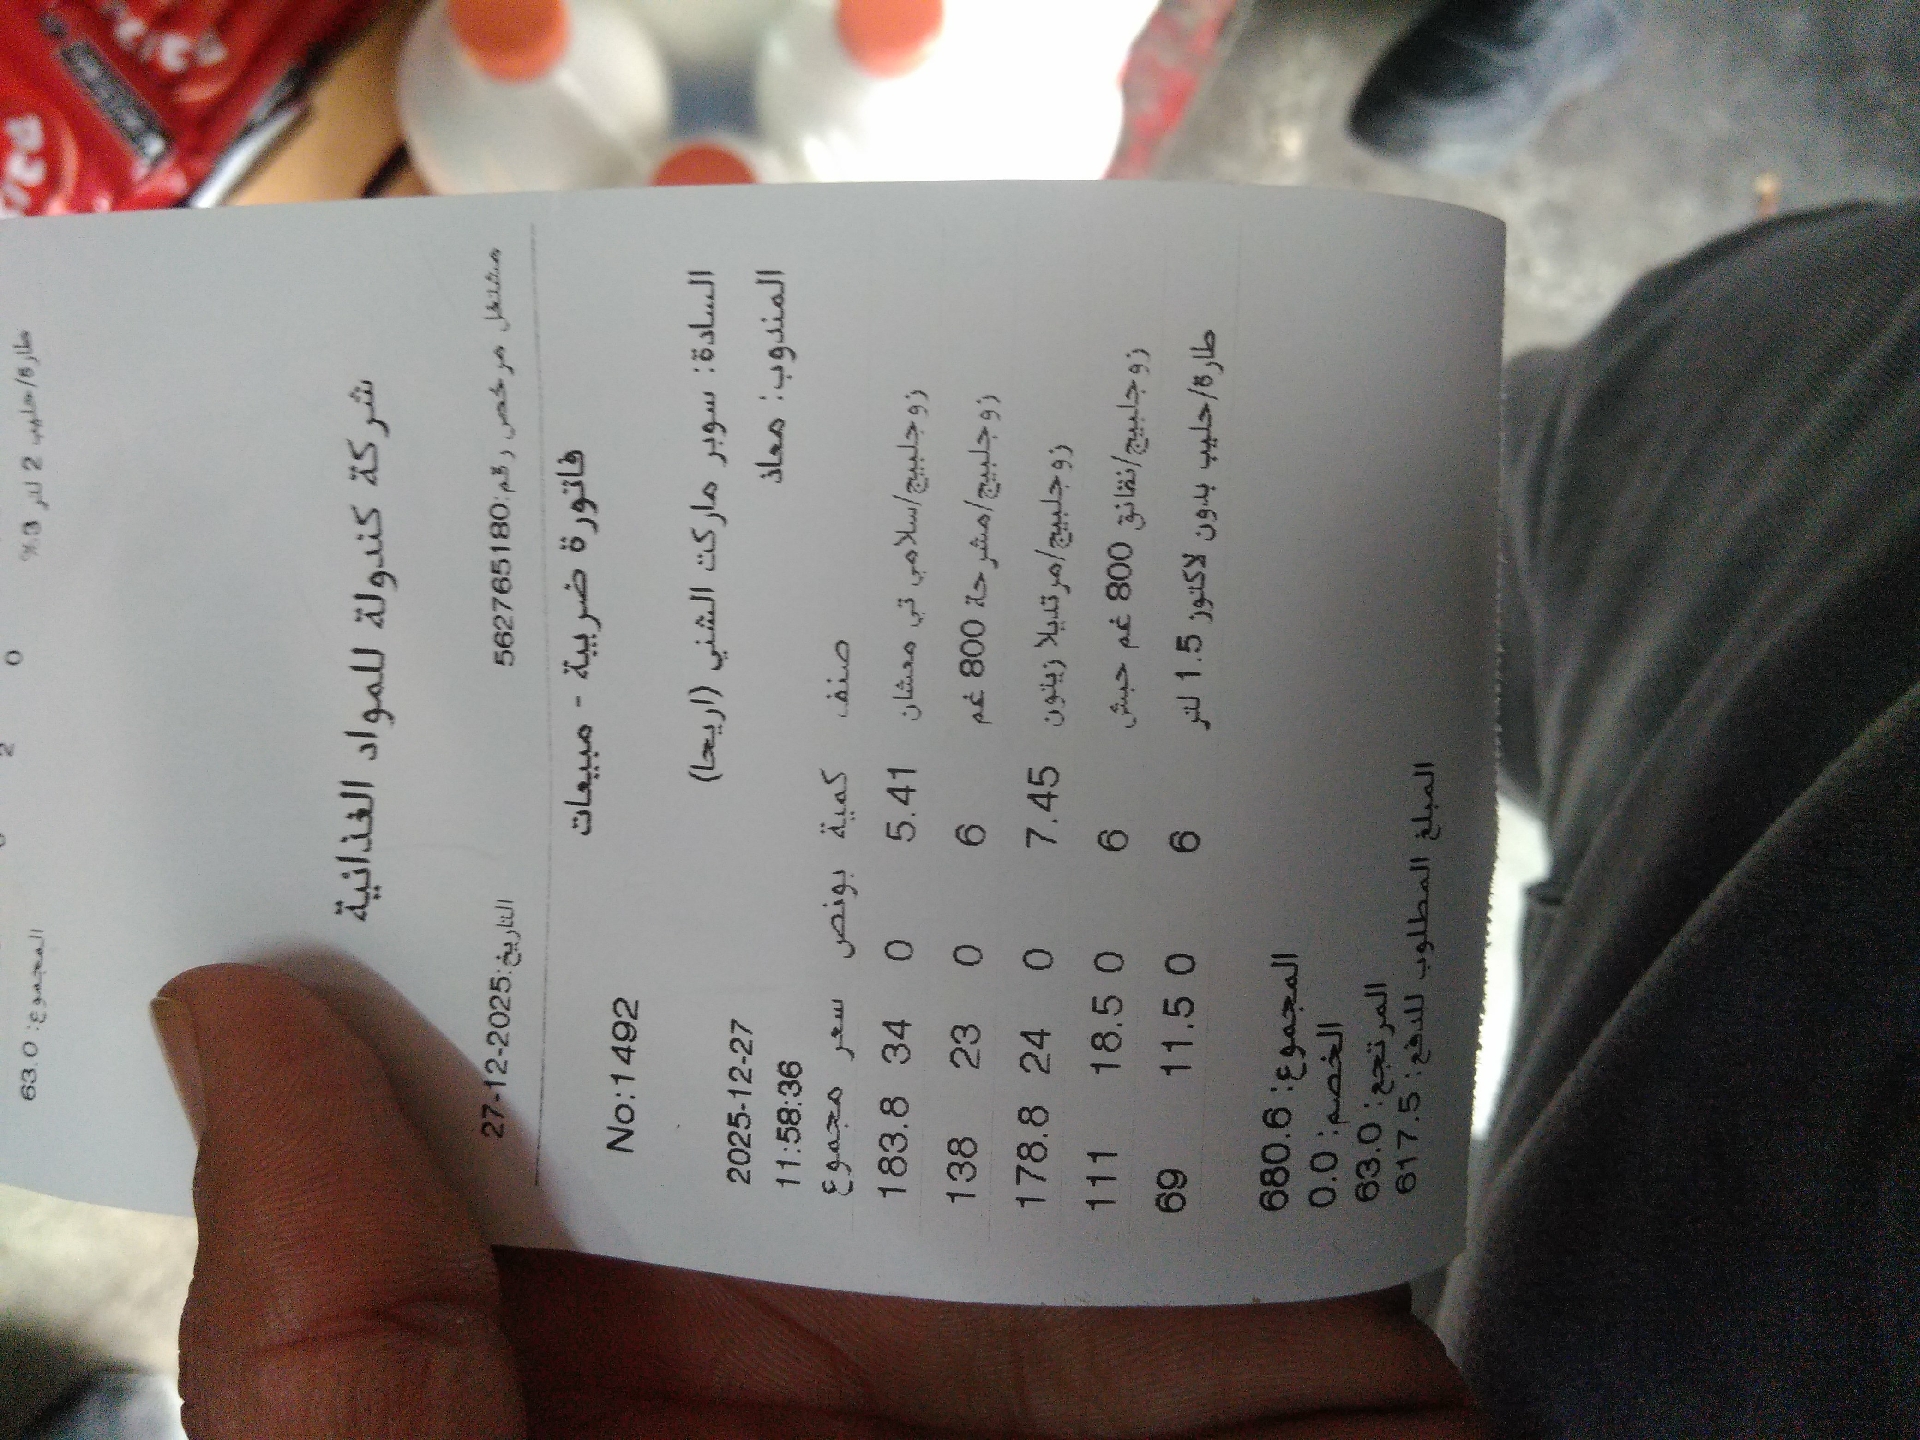 طارة/حليب 2 لتر 3% 2 0
المجموع: 63.0
شركة كندولة للمواد الغذائية
مشتغل مرخص رقم:562765180 التاريخ:27-12-2025
فاتورة ضريبية - مبيعات
No:1492
السادة: سوبر ماركت الشني (اريحا)
2025-12-27
المندوب: معاذ
11:58:36
صنف كمية بونص سعر مجموع
زوجلبيج/سلامي تي معشان 5.41 0 34 183.8
زوجلبيج/مشرحة 800 غم 6 0 23 138
زوجلبيج/مرتديلا زيتون 7.45 0 24 178.8
زوجلبيج/نقانق 800 غم حبش 6 0 18.5 111
طارة/حليب بدون لاكتوز 1.5 لتر 6 0 11.5 69
المجموع: 680.6
الخصم: 0.0
المرتجع: 63.0
المبلغ المطلوب للدفع: 617.5